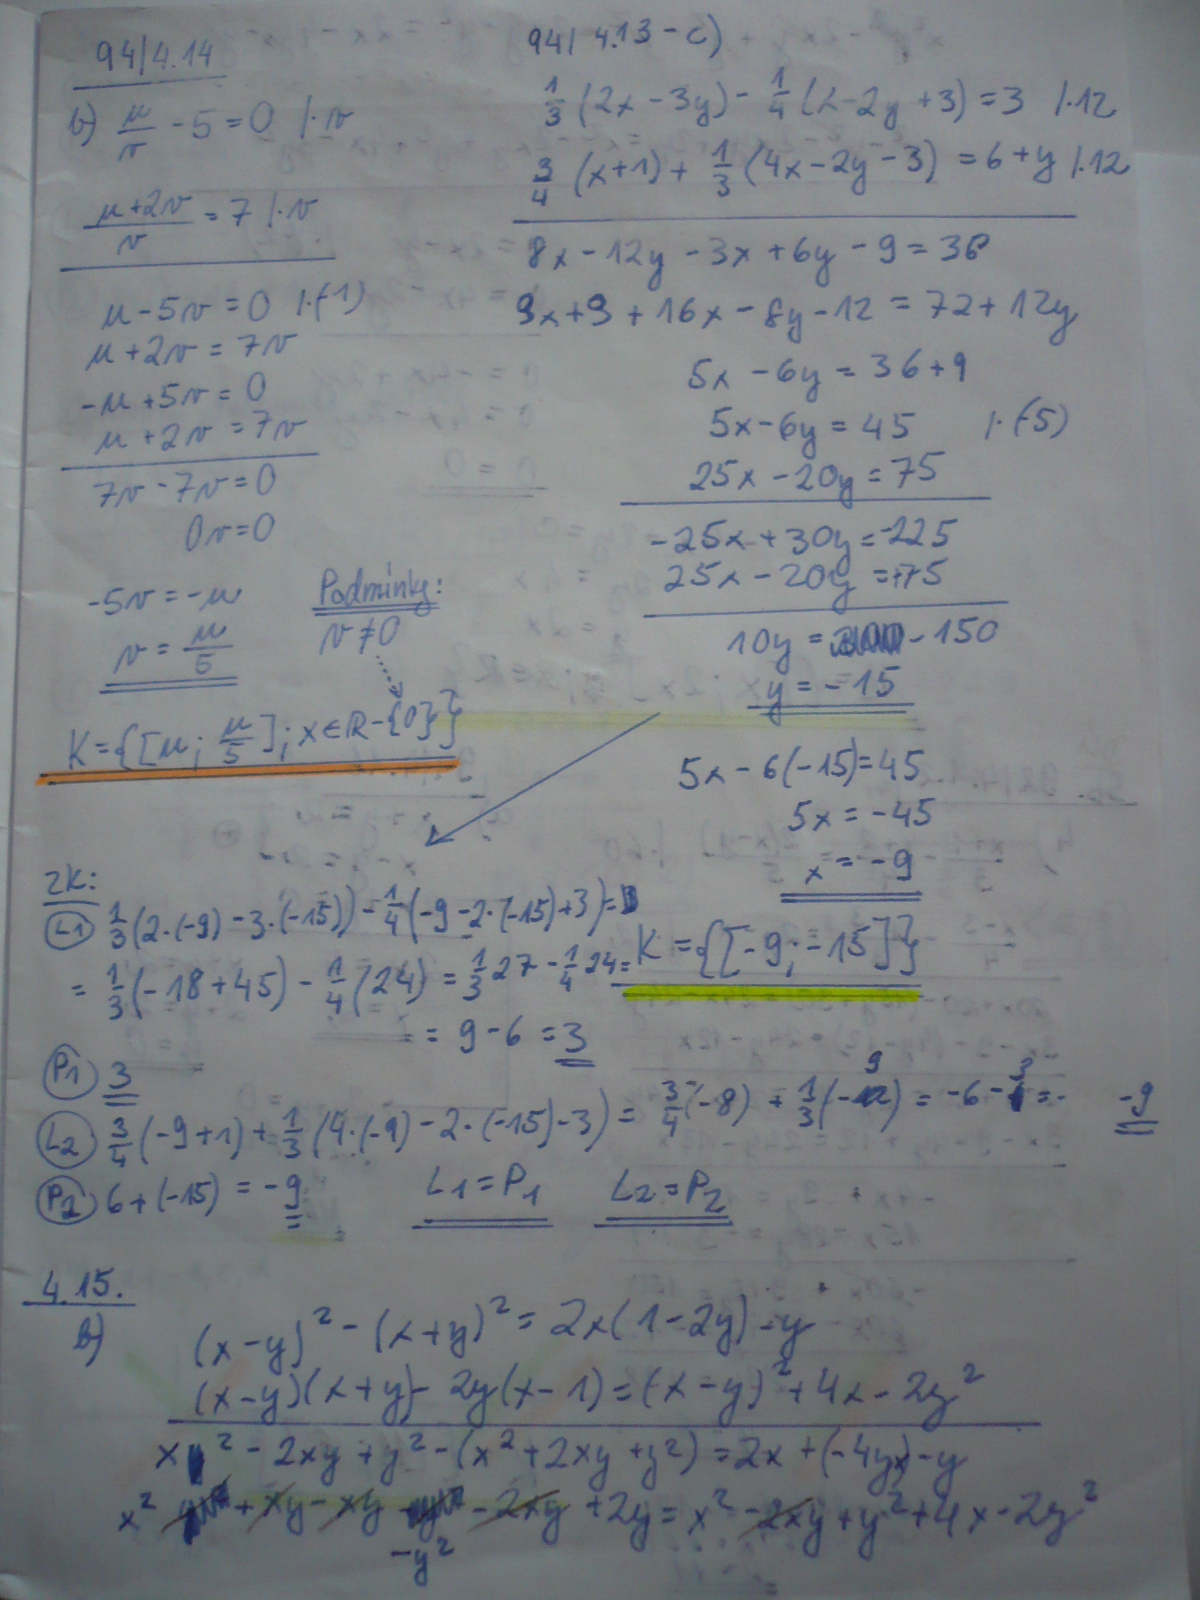 94/4.14
b) u/v - 5 = 0 /·v
(u+2v)/v = 7 /·v
u - 5v = 0 /·(-1)
u + 2v = 7v
-u + 5v = 0
u + 2v = 7v
7v - 7v = 0
0v = 0
-5v = -u
v = u/5
Podmínky:
v ≠ 0
K = {[u; u/5]; x∈R-{0}}
94/4.13 - c)
1/3 (2x - 3y) - 1/4 (x - 2y + 3) = 3 /·12
3/4 (x+1) + 1/3 (4x - 2y - 3) = 6 + y /·12
8x - 12y - 3x + 6y - 9 = 36
9x + 9 + 16x - 8y - 12 = 72 + 12y
5x - 6y = 36 + 9
5x - 6y = 45 /·(-5)
25x - 20y = 75
-25x + 30y = -225
25x - 20y = +75
10y = -150
y = -15
5x - 6(-15) = 45
5x = -45
x = -9
K = {[-9; -15]}
ZK:
L1 1/3 (2·(-9) - 3·(-15)) - 1/4 (-9 - 2·(-15) + 3) =
= 1/3 (-18 + 45) - 1/4 (24) = 1/3 27 - 1/4 24 =
= 9 - 6 = 3
P1 3
L2 3/4 (-9+1) + 1/3 (4·(-9) - 2·(-15) - 3) = 3/4 (-8) + 1/3 (-9) = -6 - 3 = -9
P2 6 + (-15) = -9
L1 = P1 L2 = P2
4.15.
b)
(x-y)² - (x+y)² = 2x(1-2y) - y
(x-y)(x+y) - 2y(x-1) = (x-y)² + 4x - 2y²
x² - 2xy + y² - (x² + 2xy + y²) = 2x + (-4yx) - y
x² + xy - xy - y² - 2xy + 2y = x² - 2xy + y² + 4x - 2y²